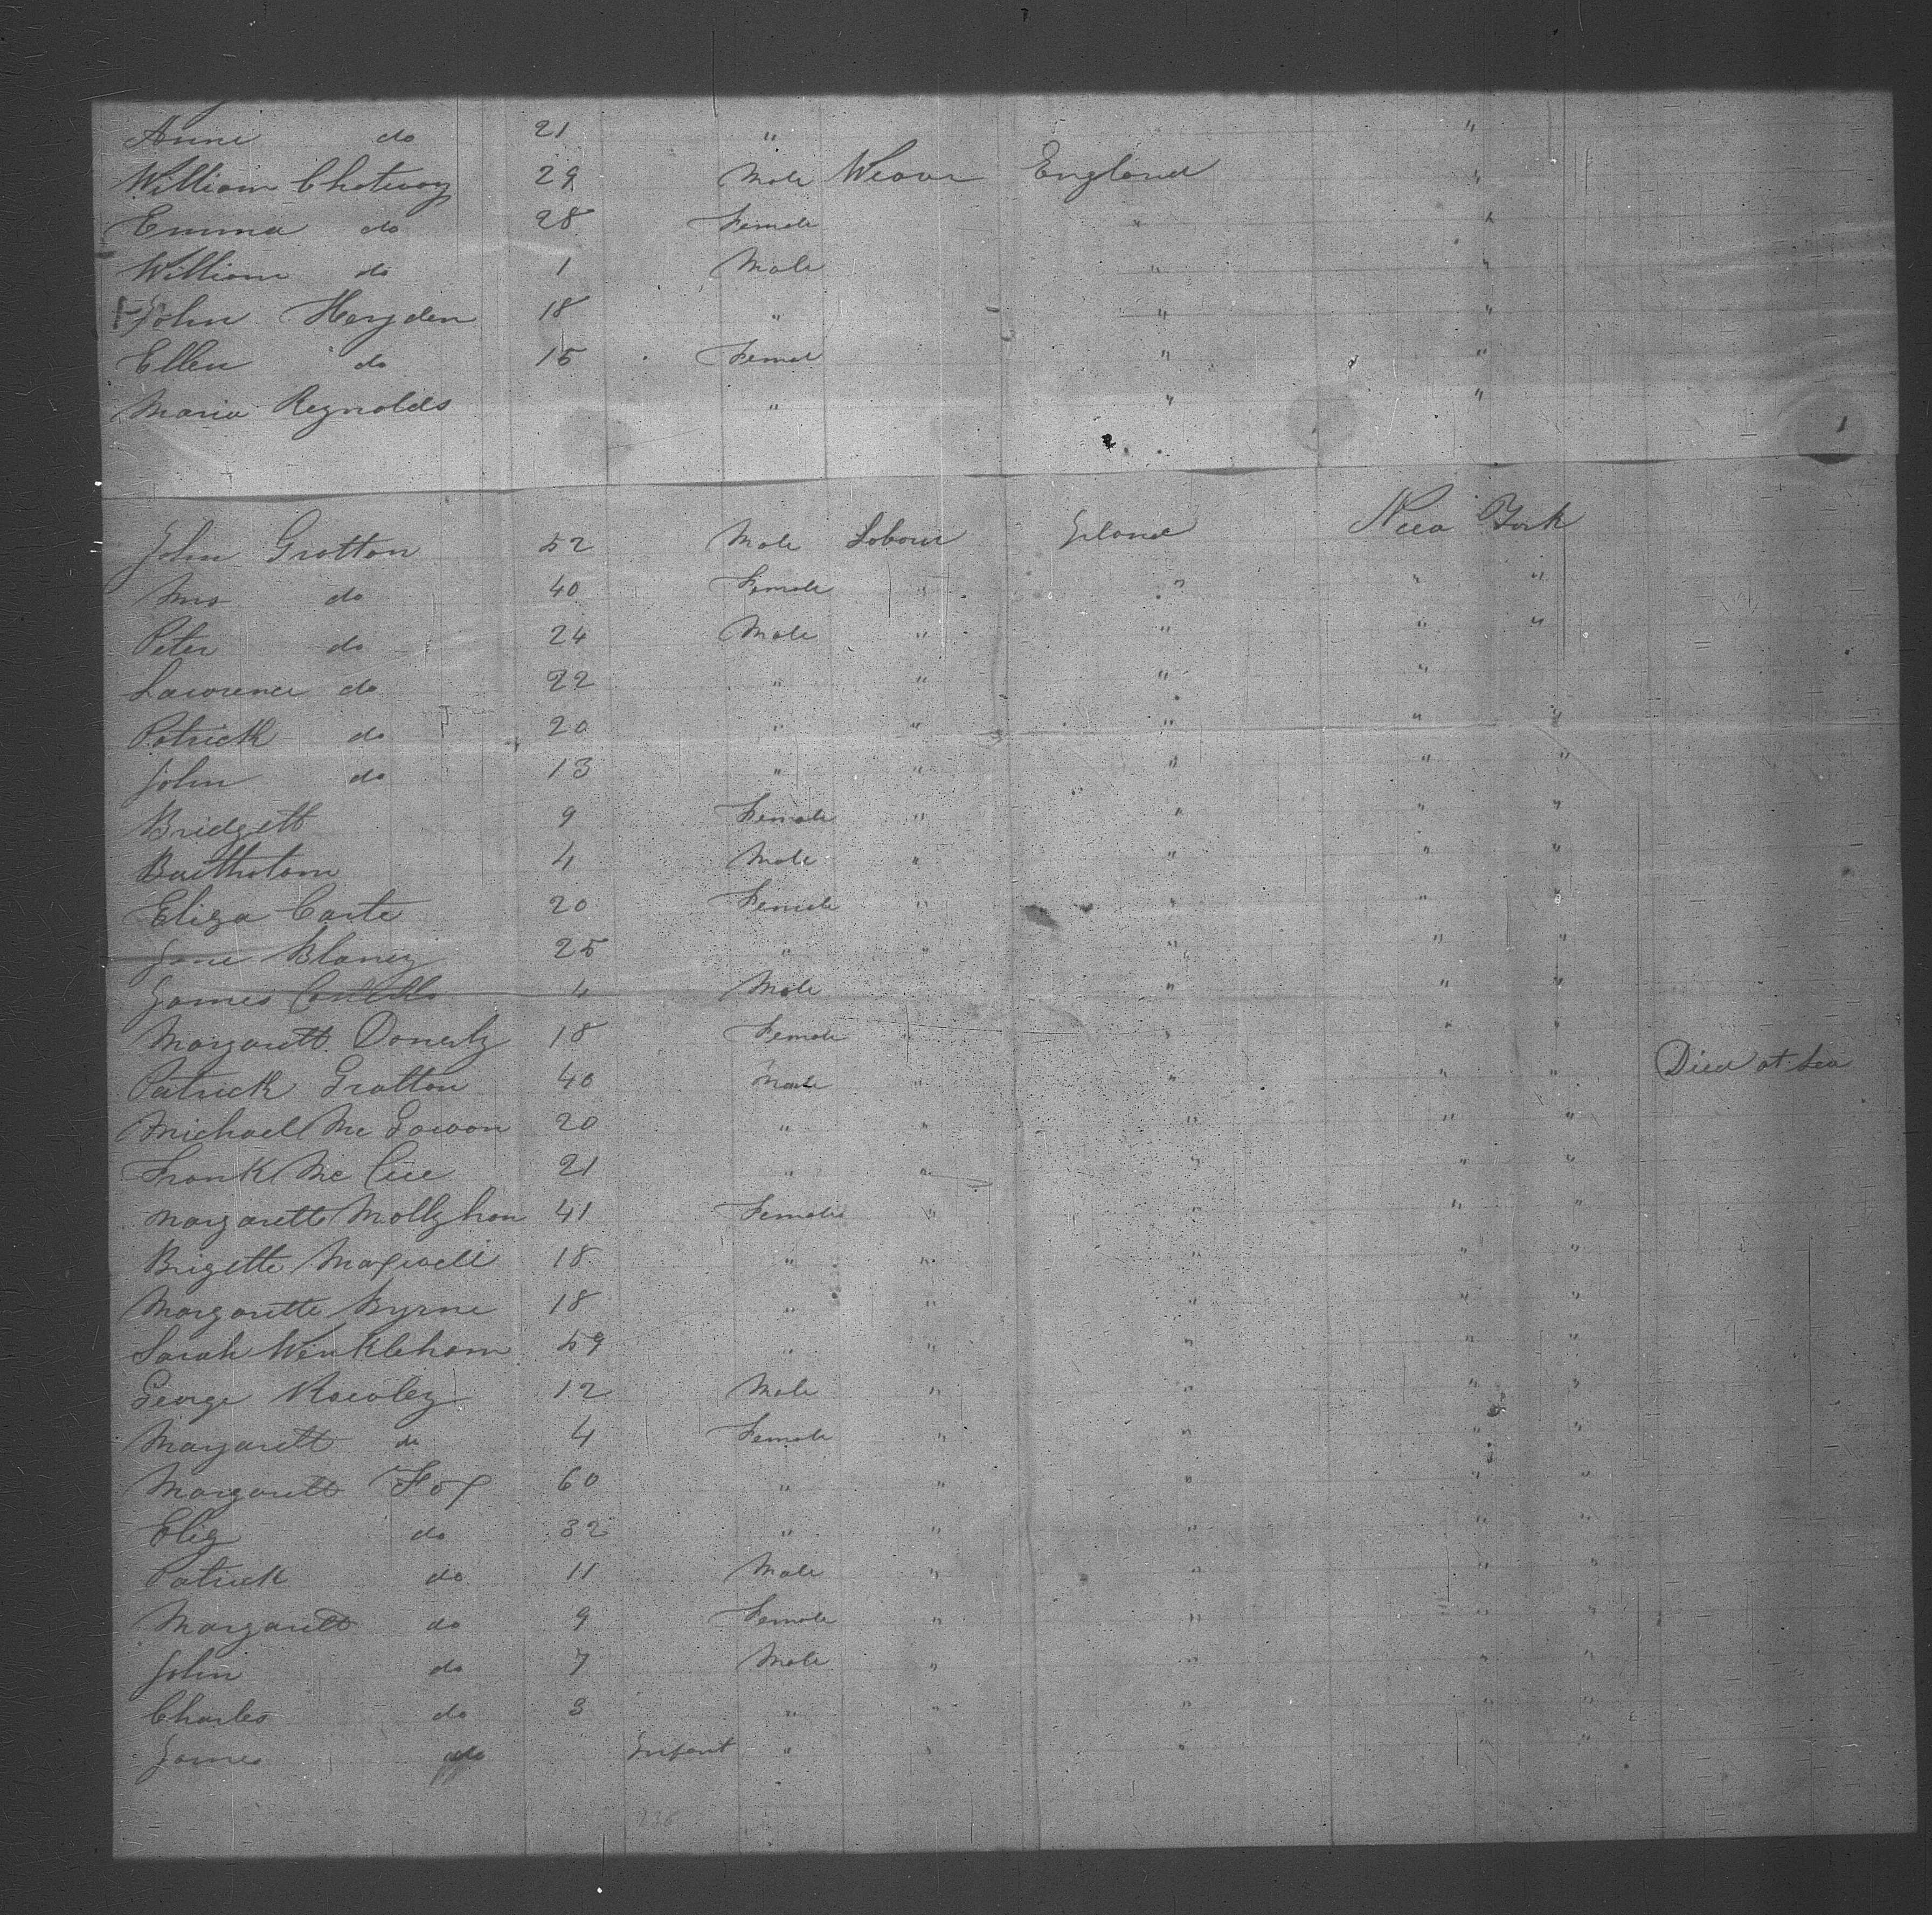 Anne do 21 " "
William Chatway 29 Male Weaver England "
Emma do 28 Female " "
William do 1 Male " "
John Hayden 18 " " "
Ellen do 15 Femal " "
Maria Reynolds " " "
John Gratton 52 Male Labour Irland New York
Mrs do 40 Female " " " "
Peter do 24 Male " " " "
Lawrence do 22 " " " "
Patrick do 20 " " " " "
John do 13 " " " " "
Bridgett 9 Female " " " "
Bartholom 4 Male " " " "
Eliza Carte 20 Female " " " "
Jane Blaney 25 " " " " "
James 4 Male " " "
Margarett 18 Female " " " "
Patrick Gratton 40 Male " " " " Died at Sea
Michael Mc Gowan 20 " " " " "
Frank Mc 21 " " " " "
Margarett 41 Female " " " "
Brigette Maxwell 18 " " " " "
Margarette Byrne 18 " " " " "
Sarah Winkleham 59 " " " " "
George Rowley 12 Male " " " "
Margarett do 4 Female " " " "
Margarett Fox 60 " " " "
Eliz do 32 " " " " "
Patrick do 11 Male " " " "
Margarett do 9 Female " " " "
John do 7 Male " " " "
Charles do 3 " " " " "
James do Infant " " " " "
236